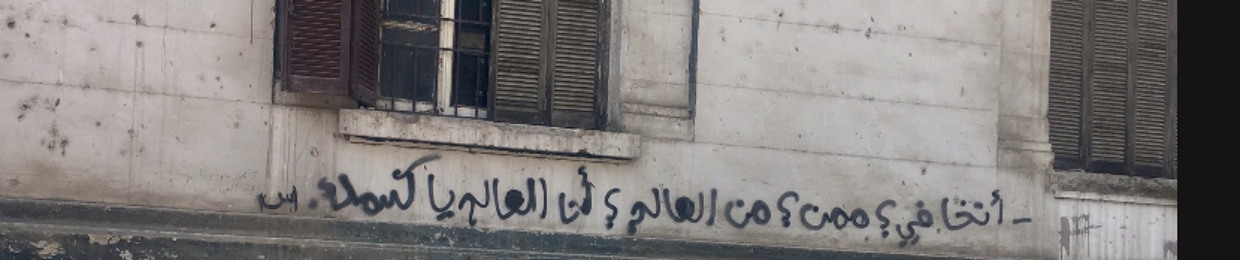 - أتخافي؟ ممن؟ من العالم؟ أنا العالم يا